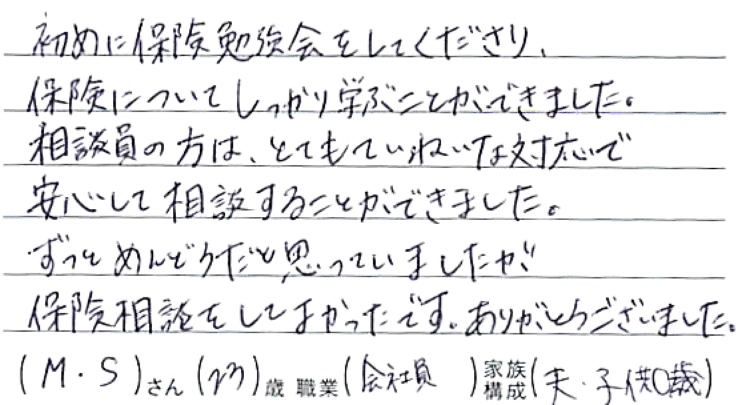 初めに保険勉強会をしてくださり、
保険についてしっかり学ぶことができました。
相談員の方は、とてもていねいな対応で
安心して相談することができました。
ずっとめんどうだと思っていましたが
保険相談をしてよかったです。ありがとうございました。
(M・S)さん(23)歳 職業(会社員)家族構成(夫・子供0歳)